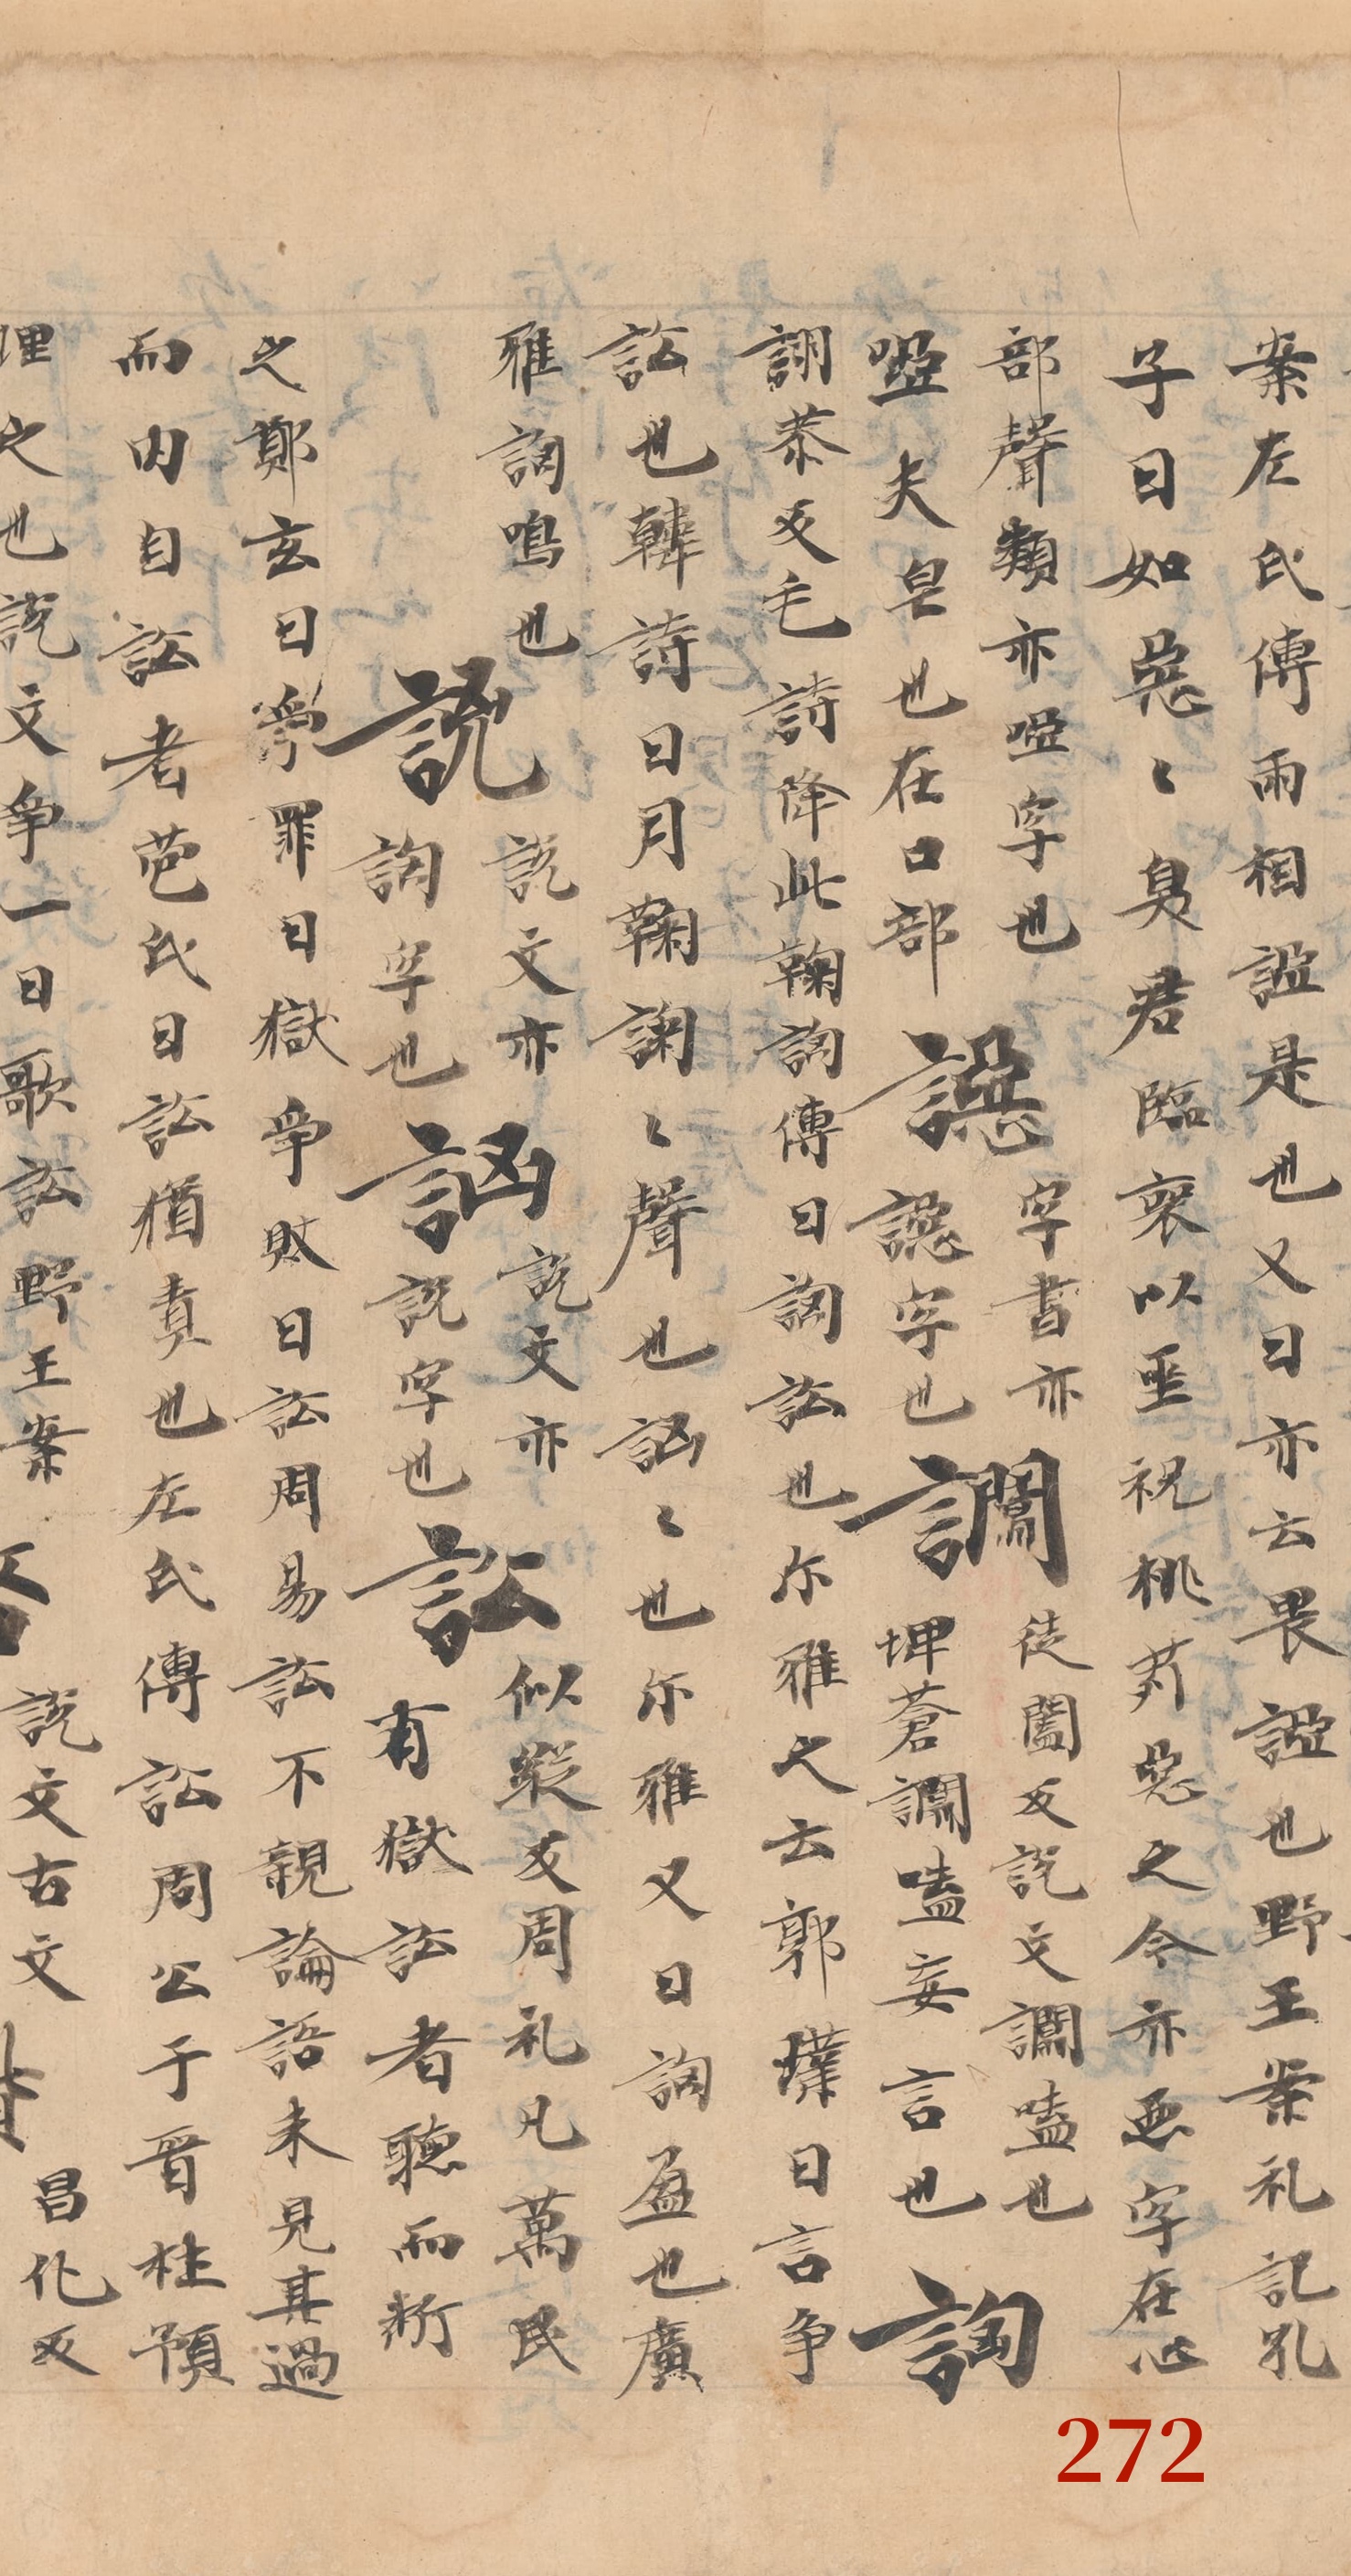 案左氏傳兩相誣是也又曰亦云畏誣也野王案礼記孔
子曰如惡〻臭君臨喪以巫祝桃茢惡之今亦惡字在心
部聲類亦啞字也
啞夫皀也在口部
諰字書亦
諰字也
讕徒闔反説文讕嗑也
埤蒼讕嗑妄言也
訩
詡恭反毛詩降此鞠訩傳曰訩訟也尓雅之云郭璞曰言争
訟也韓詩曰月鞠訩〻聲也詾〻也尓雅又曰訩盈也廣
雅訩鳴也
説
説文亦
訩字也
詾
説文亦
説字也
訟
似縱反周礼凡萬民
有獄訟者聽而断
之鄭玄曰爭罪曰獄爭賊曰訟周易訟不親論語未見其過
而内自訟者苞氏曰訟猶責也左氏傳訟周公于晋杜預
理之也説文争一曰歌訟野王案
説文古文
昌化反
272